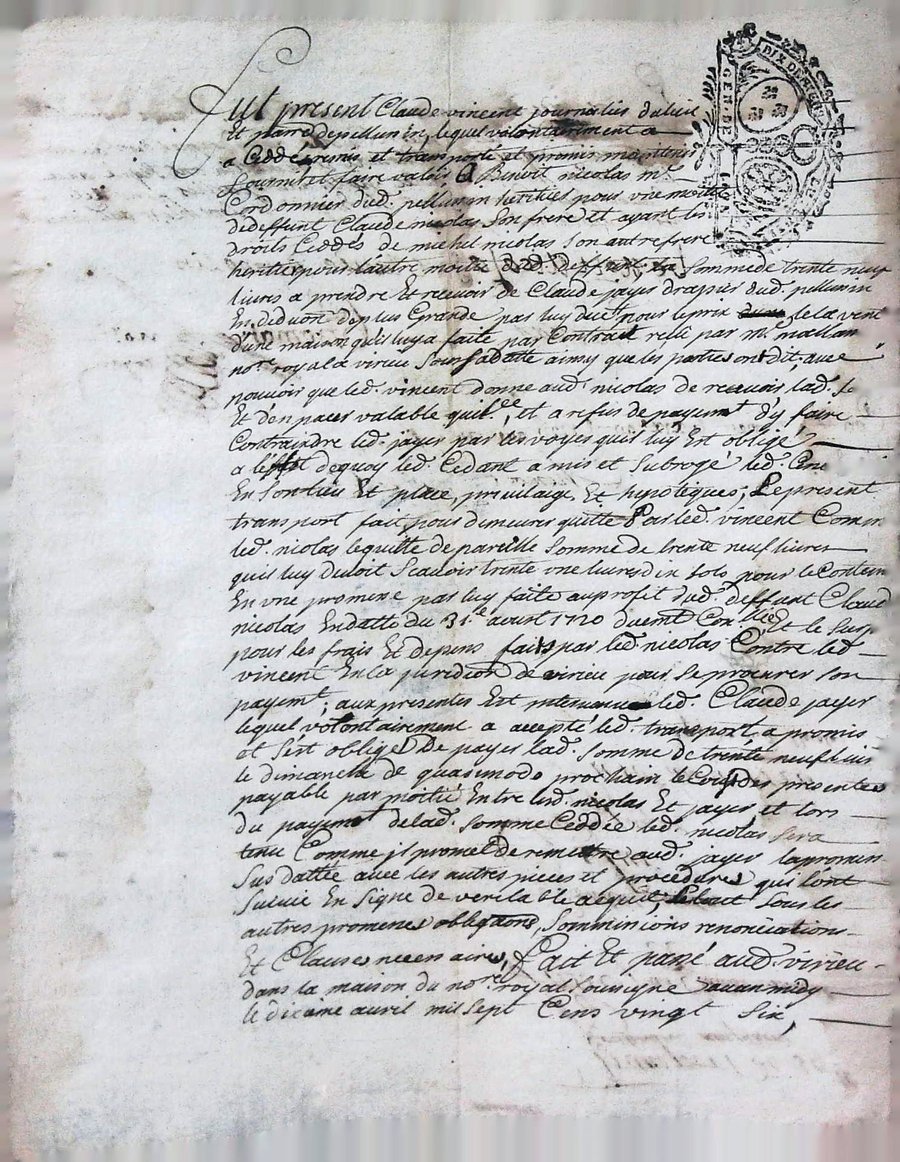 DIX DENIERS
GEN. DE
LYON
Fut present Claude vincent journalier du lieu
Et parroe de pellussin, lequel volontairement a
a Ceddé, remis et transporté et promis maintenir
fournir et faire valoir A Benoit nicolas mr
Cordonnier dud. pellussin heritier pour une moitié
de deffunt Claude nicolas Son frere et ayant les
droits Ceddés de michel nicolas Son autre frere
heritier pour l'autre moitié dud. deffunt la Somme de trente neuf
livres a prendre Et recevoir de Claude jayer drapier dud. pellussin
En deduction de plus Grande par luy due pour le prix de la vente
d'une maison qu'il luy a faite par Contrait reçu par me mallan
notre royal a virieu Sous sa datte ainsy que les parties ont dit, avec
pouvoir que led. vincent donne aud. nicolas de recevoir lad. Se
Et d'en passer valable quittce, et a refus de payemt d'y faire
Contraindre led. jayer par les voyes qu'il luy Est obligé
a l'effet de quoy led. Cedant a mis et Subrogé led. Cere
En Son lieu Et place, privilaige, Et hipoteques, Le present
transport fait pour demeurer quitte Par led. vincent Comm
led. nicolas le quitte de pareille Somme de trente neuf livres
qu'il luy devoit Scavoir trente une livres dix Sols pour le Contenu
En une promesse par luy faite au profit dud. deffunt Claude
nicolas En datte du 31e aoust 1720 Et le Surp
pour les frais Et depens faits par led. nicolas Contre led.
vincent En la juridiction de virieu pour Se procurer Son
payemt; aux presentes Est intervenu led. Claude jayer
lequel volontairement a accepté led. transport, a promis
et S'est obligé De payer lad. Somme de trente neuf livres
le dimanche de quasimodo prochain le Cout des presentes
payable par moitié Entre led. nicolas Et jayer, et lors
du payemt de lad. Somme Ceddée led. nicolas Sera
tenu Comme jl promet de remettre aud. jayer la promesse
Sus dattée avec les autres pieces et procedures qui l'ont
Suivie En Signe de veritable acquit, Le tout Sous les
autres promesses obligaons, Soumissions renonciations
Et Clauses necessaires, Fait Et passé aud. virieu
dans la maison du notre royal Soussigné avan midy
le dixième avril mil Sept Cens vingt Six,